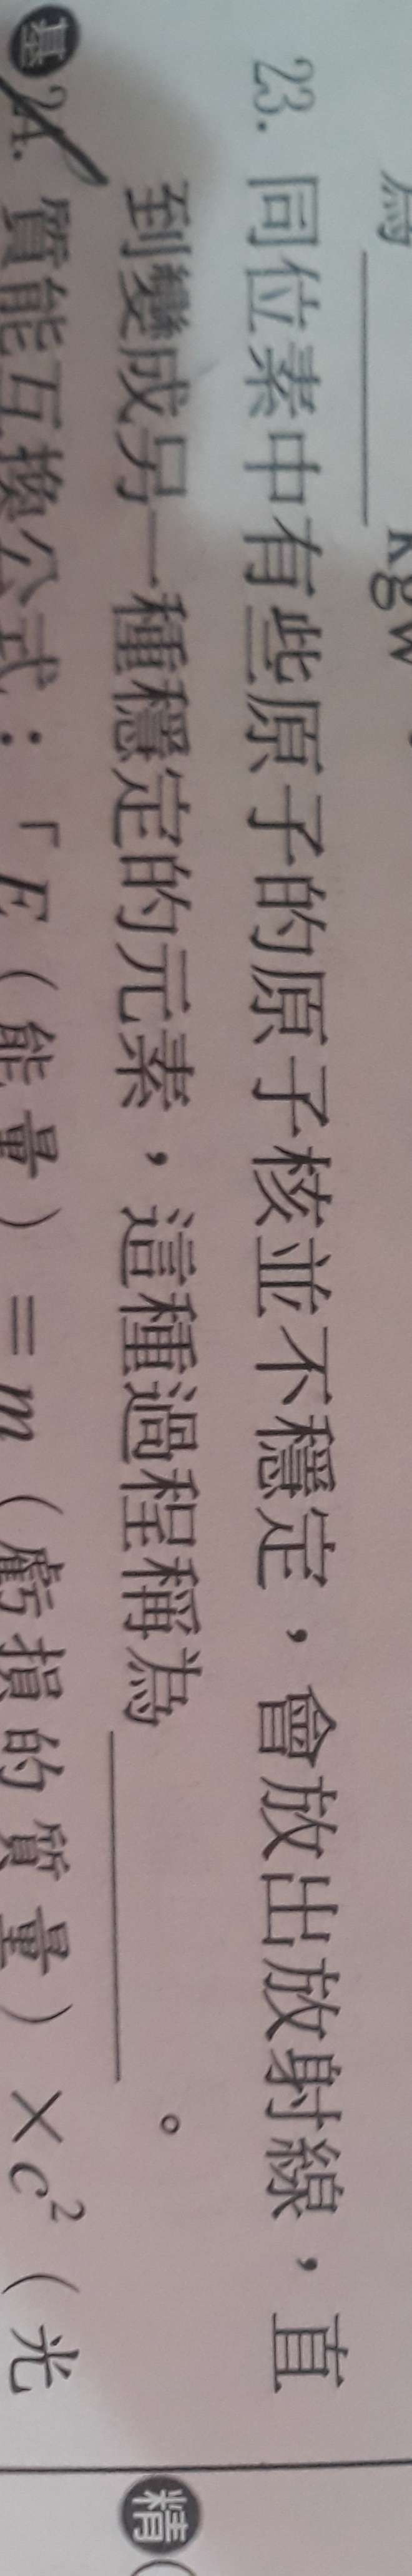 為＿＿＿kgw
23. 同位素中有些原子的原子核並不穩定，會放出放射線，直
到變成另一種穩定的元素，這種過程稱為＿＿＿＿。
基24. 質能互換公式：「E（能量）＝m（虧損的質量）×c²（光
精